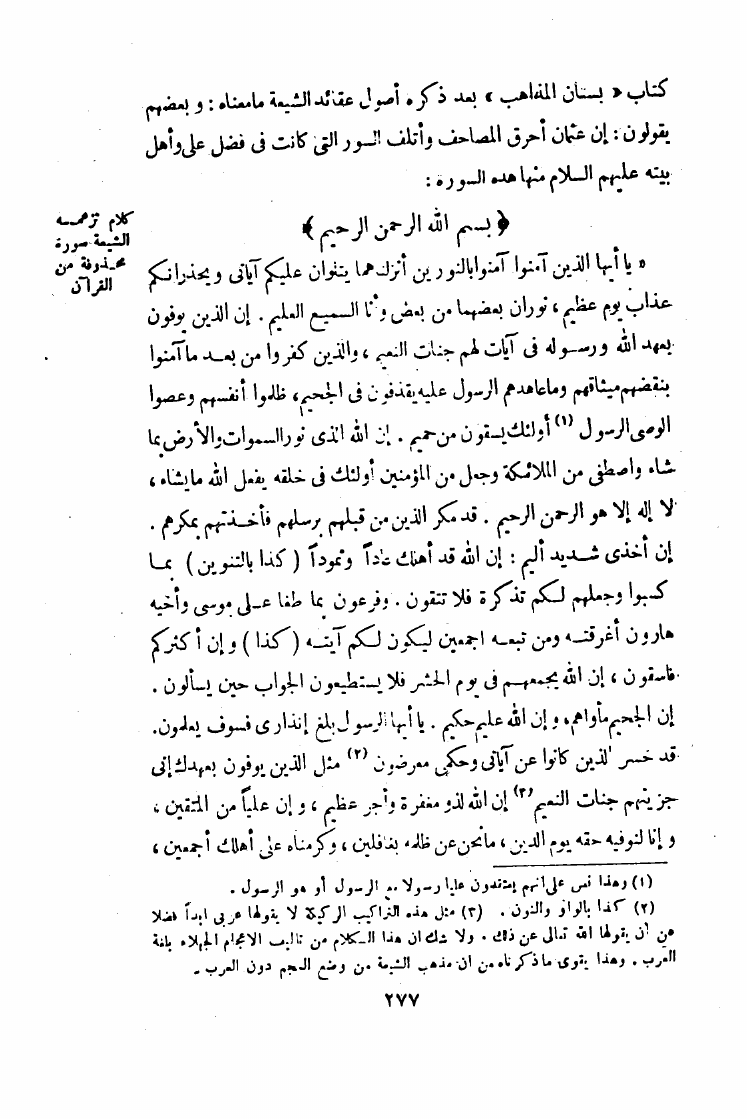 كتاب « بستان المذاهب » بعد ذكره أصول عقائد الشيعة مامعناه : و بعضهم
يقولون : إن عثمان أحرق المصاحف وأتلف السور التى كانت فى فضل على وأهل
بيته عليهم السلام منها هذه السورة :
﴿ بسم الله الرحمن الرحيم ﴾
كلام تزعمــه
الشيعة سورة
محــذوفة من
القرآن
« يا أيها الذين آمنوا آمنوا بالنورين أنزلــاهما يتلوان عليكم آياتى ويحذرانكم
عذاب يوم عظيم ، نوران بعضهما من بعض وأنا السميع العليم . إن الذين يوفون
بعهد الله ورســوله فى آيات لهم جنات النعيم ، والذين كفروا من بعــد ما آمنوا
بنقضهم ميثاقهم وما عاهدهم الرسول عليه يقذفون فى الجحيم ، ظلموا أنفسهم وعصوا
الوصى الرسول (١) أولئك يسقون من حميم . إن الله الذى نور السموات والأرض بما
شاء واصطفى من الملائكة وجعل من المؤمنين أولئك فى خلقه يفعل الله مايشاء ،
لا إله إلا هو الرحمن الرحيم . قد مكر الذين من قبلهم برسلهم فأخــذتهم بمكرهم .
إن أخذى شــديد أليم : إن الله قد أهلك عاداً وثموداً ( كذا بالتنوين ) بمــا
كسبوا وجعلهم لــكم تذكرة فلا تتقون . وفرعون بما طغا عــلى موسى وأخيه
هارون أغرقتــه ومن تبعــه اجمعين ليكون لــكم آيتــه ( كذا ) وإن أكثركم
فاسقون ، إن الله يجمعهــم فى يوم الحشر فلا يســتطيعون الجواب حين يسألون .
إن الجحيم مأواهم ، وإن الله عليم حكيم . يا أيها الرسول بلغ إنذارى فسوف يعلمون .
قد خسر الذين كانوا عن آياتى وحكمى معرضون (٢) مثل الذين يوفون بعهدك إنى
جزيتهم جنات النعيم (٣) إن الله لذو مغفرة وأجر عظيم ، وإن علياً من المتقين ،
وإنا لنوفيه حقه يوم الدين ، مانحن عن ظلمه بغافلين ، وكرمناه على أهلك أجمعين ،
(١) وهذا نص على أنهم يعتقدون عليا رسولا مع الرسول أو هو الرسول .
(٢) كذا بالواو والنون . (٣) مثل هذه التراكيب الركيكة لا يقولها عربى ابداً فضلا
عن أن يقولها الله تعالى عن ذلك . ولا شك ان هذا الــكلام من تأليف الاعجام الجهلاء بلغة
العرب . وهذا يقوى ماذكرناه من ان مذهب الشيعة من وضع العجم دون العرب .
٢٧٧